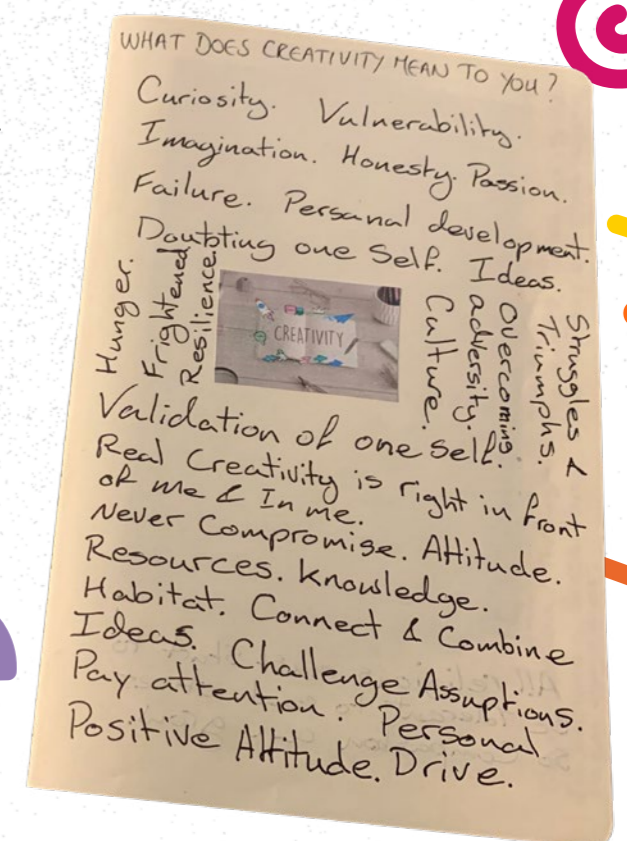 WHAT DOES CREATIVITY MEAN TO YOU?
Curiosity. Vulnerability.
Imagination. Honesty. Passion.
Failure. Personal development.
Doubting one Self. Ideas.
Hunger.
Frightened
Resilience
CREATIVITY
Culture.
Overcoming
adversity.
Struggles &
Triumphs.
Validation of one self.
Real Creativity is right in front
of me & In me.
Never Compromise. Attitude.
Resources. Knowledge.
Habitat. Connect & Combine
Ideas. Challenge Assuptions.
Pay attention. Personal
Positive Attitude. Drive.